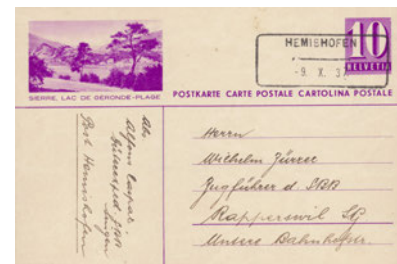 HEMISHOFEN
-9. X. 3
10
HELVETIA
SIERRE, LAC DE GÉRONDE-PLAGE
POSTKARTE CARTE POSTALE CARTOLINA POSTALE
Abs
Alfons Caspar
Post Hemishofen
Herrn
Wilhelm Zürrer
Zugführer d. SBB
Rapperswil SG
Unsere